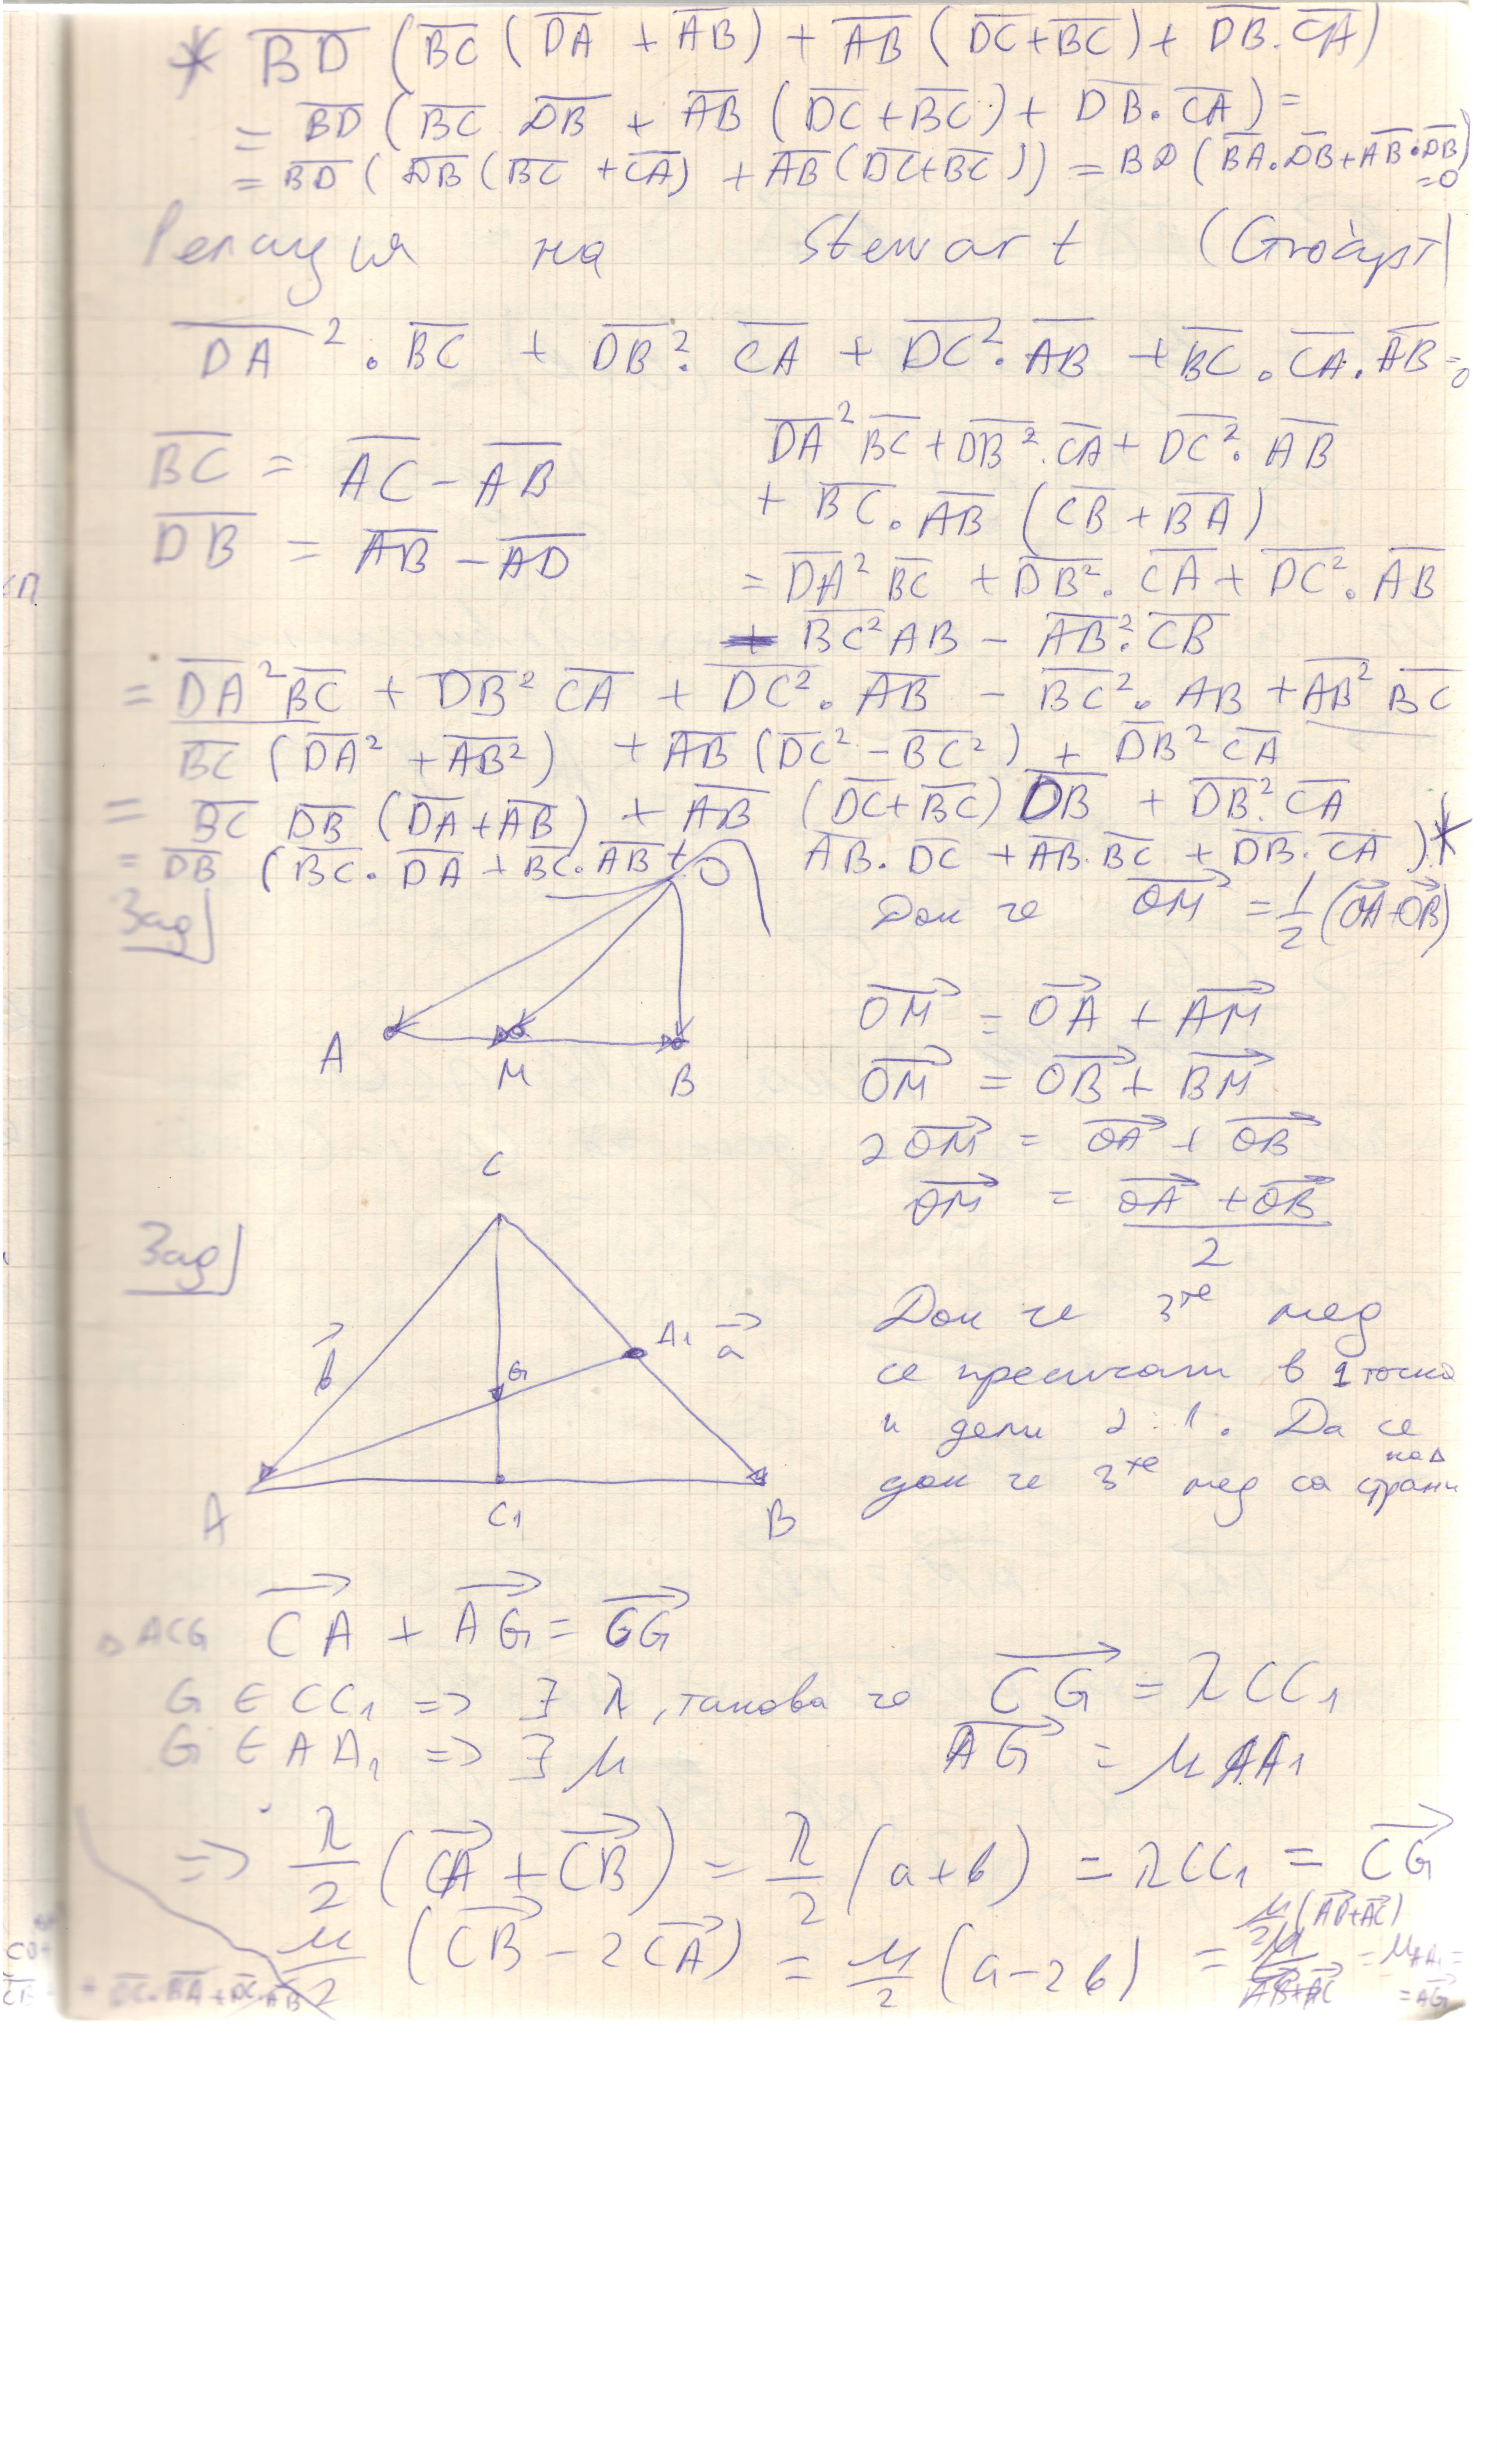 * B̅D̅ (B̅C̅ (D̅A̅ + A̅B̅) + A̅B̅ (D̅C̅ + B̅C̅) + D̅B̅. C̅A̅)
= B̅D̅ (B̅C̅ D̅B̅ + A̅B̅ (D̅C̅ + B̅C̅) + D̅B̅. C̅A̅) =
= B̅D̅ ( D̅B̅ (B̅C̅ + C̅A̅) + A̅B̅ (D̅C̅ + B̅C̅)) = BD (B̅A̅. D̅B̅ + A̅B̅. D̅B̅) = 0
Релация на Stewart
D̅A̅². B̅C̅ + D̅B̅². C̅A̅ + D̅C̅². A̅B̅ + B̅C̅. C̅A̅. A̅B̅ = 0
B̅C̅ = A̅C̅ - A̅B̅
D̅B̅ = A̅B̅ - A̅D̅
D̅A̅² B̅C̅ + D̅B̅². C̅A̅ + D̅C̅². A̅B̅
+ B̅C̅. A̅B̅ (C̅B̅ + B̅A̅)
= D̅A̅² B̅C̅ + D̅B̅². C̅A̅ + D̅C̅². A̅B̅
B̅C̅² AB - A̅B̅². C̅B̅
= D̅A̅² B̅C̅ + D̅B̅² C̅A̅ + D̅C̅². A̅B̅ - B̅C̅². AB + A̅B̅² B̅C̅
B̅C̅ (D̅A̅² + A̅B̅²) + A̅B̅ (D̅C̅² - B̅C̅²) + D̅B̅² C̅A̅
= B̅C̅ D̅B̅ (D̅A̅ + A̅B̅) + A̅B̅ (D̅C̅ + B̅C̅) D̅B̅ + D̅B̅² C̅A̅
= D̅B̅ (B̅C̅. D̅A̅ + B̅C̅. A̅B̅ + A̅B̅. D̅C̅ + A̅B̅. B̅C̅ + D̅B̅. C̅A̅) *
Зад
O
A
M
B
Док че OM⃗ = 1/2 (OA⃗ + OB⃗)
OM⃗ = OA⃗ + AM⃗
OM⃗ = OB⃗ + BM⃗
2 OM⃗ = OA⃗ + OB⃗
OM⃗ = (OA⃗ + OB⃗)/2
Зад
C
b⃗
A₁ a⃗
G
A
C₁
B
Док че 3те мед
се пресичат в 1 точка
и дели 2:1. Да се
док че 3те мед са страни
на Δ
Δ ACG CA⃗ + AG⃗ = CG⃗
G ∈ CC₁ => ∃ λ, такова че CG⃗ = λ CC₁
G ∈ AA₁ => ∃ μ AG⃗ = μ AA₁
=> λ/2 (CA⃗ + CB⃗) = λ/2 (a + b) = λ CC₁ = CG⃗
μ/2 (CB⃗ - 2CA⃗) = μ/2 (a - 2b) = μ/2 (AB⃗ + AC⃗) = μAA₁ = AG⃗